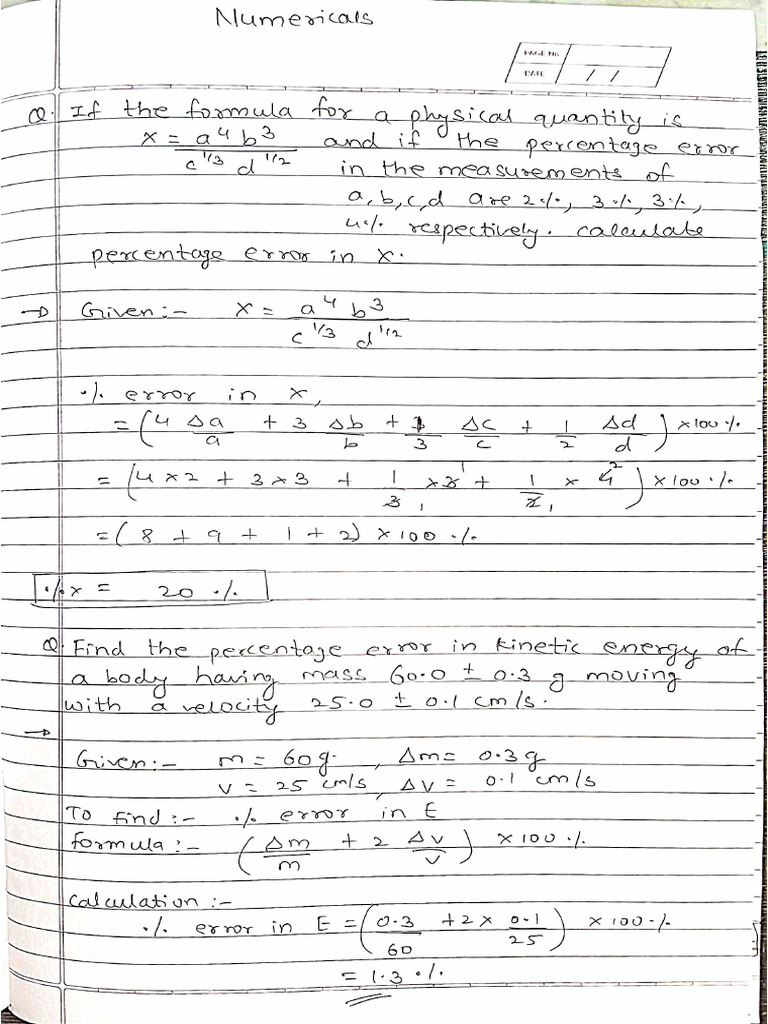 Numericals
PAGE No.
DATE / /
Q. If the formula for a physical quantity is
x = a⁴ b³ / c^1/3 d^1/2 and if the percentage error
in the measurements of
a, b, c, d are 2%, 3%, 3%,
4% respectively. calculate
percentage error in x.
→ Given :- x = a⁴ b³ / c^1/3 d^1/2
% error in x,
= (4 Δa/a + 3 Δb/b + 1/3 Δc/c + 1/2 Δd/d) × 100 %
= (4 × 2 + 3 × 3 + 1/3 × 3 + 1/2 × 4) × 100 %
= (8 + 9 + 1 + 2) × 100 %
% x = 20 %
Q. Find the percentage error in kinetic energy of
a body having mass 60.0 ± 0.3 g moving
with a velocity 25.0 ± 0.1 cm/s.
→
Given :- m = 60g. , Δm = 0.3g
v = 25 cm/s, Δv = 0.1 cm/s
To find :- % error in E
formula :- (Δm/m + 2 Δv/v) × 100 %.
calculation :-
% error in E = (0.3/60 + 2 × 0.1/25) × 100 %
= 1.3 %